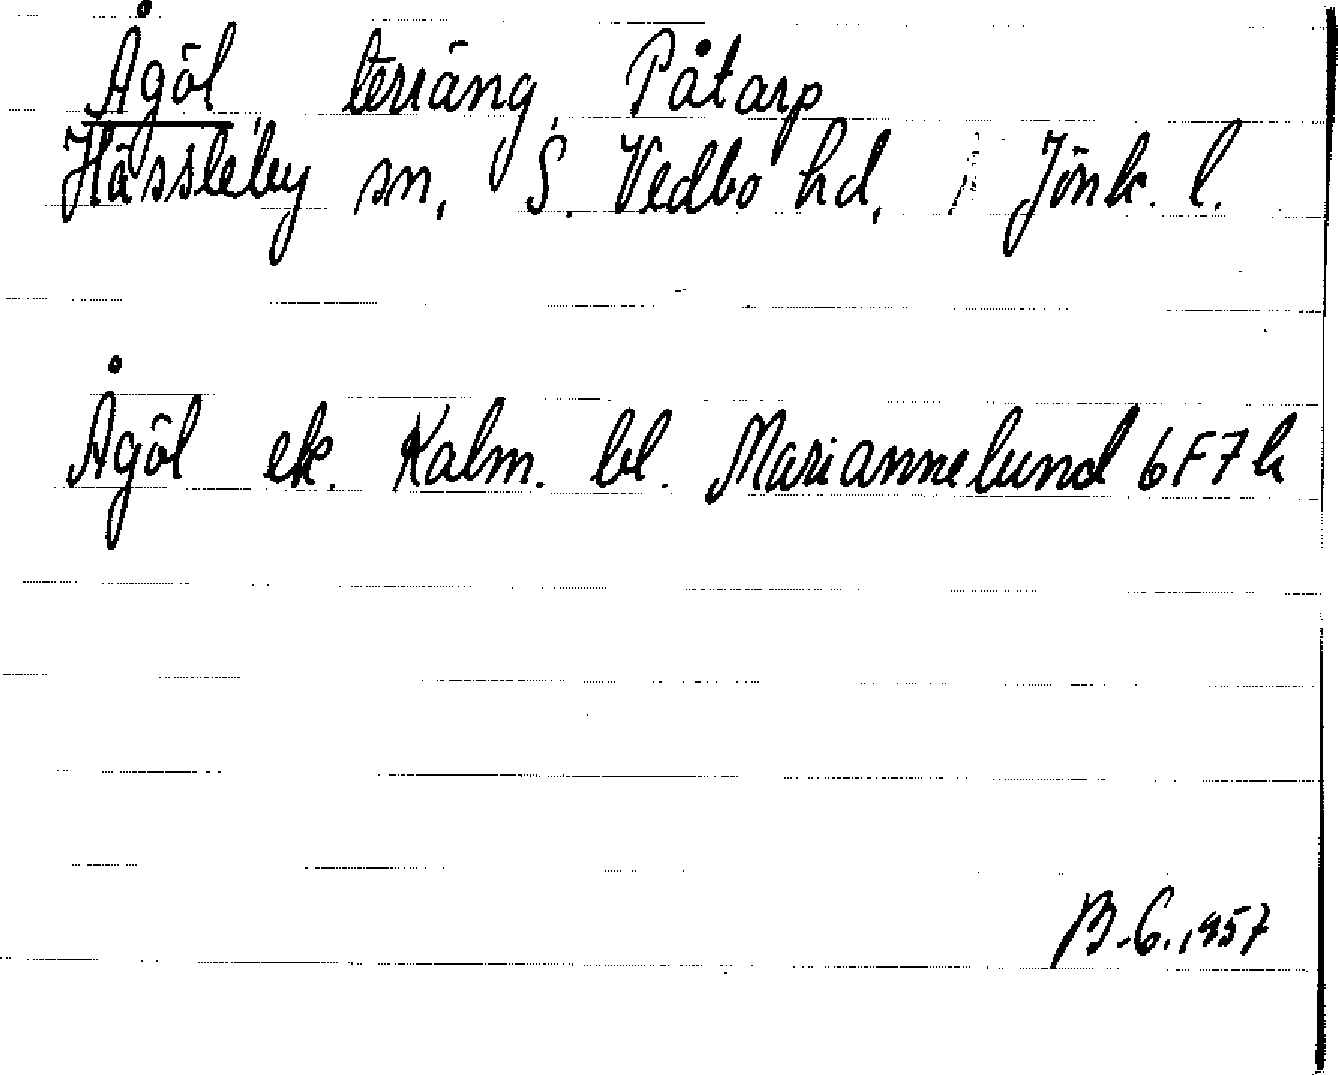 Ågöl, terräng, Påtarp
Hässleby sn, S. Vedbo hd, Jönk. l.
Ågöl ek. Kalm. bl. Mariannelund 6F7h
B-G. 1957